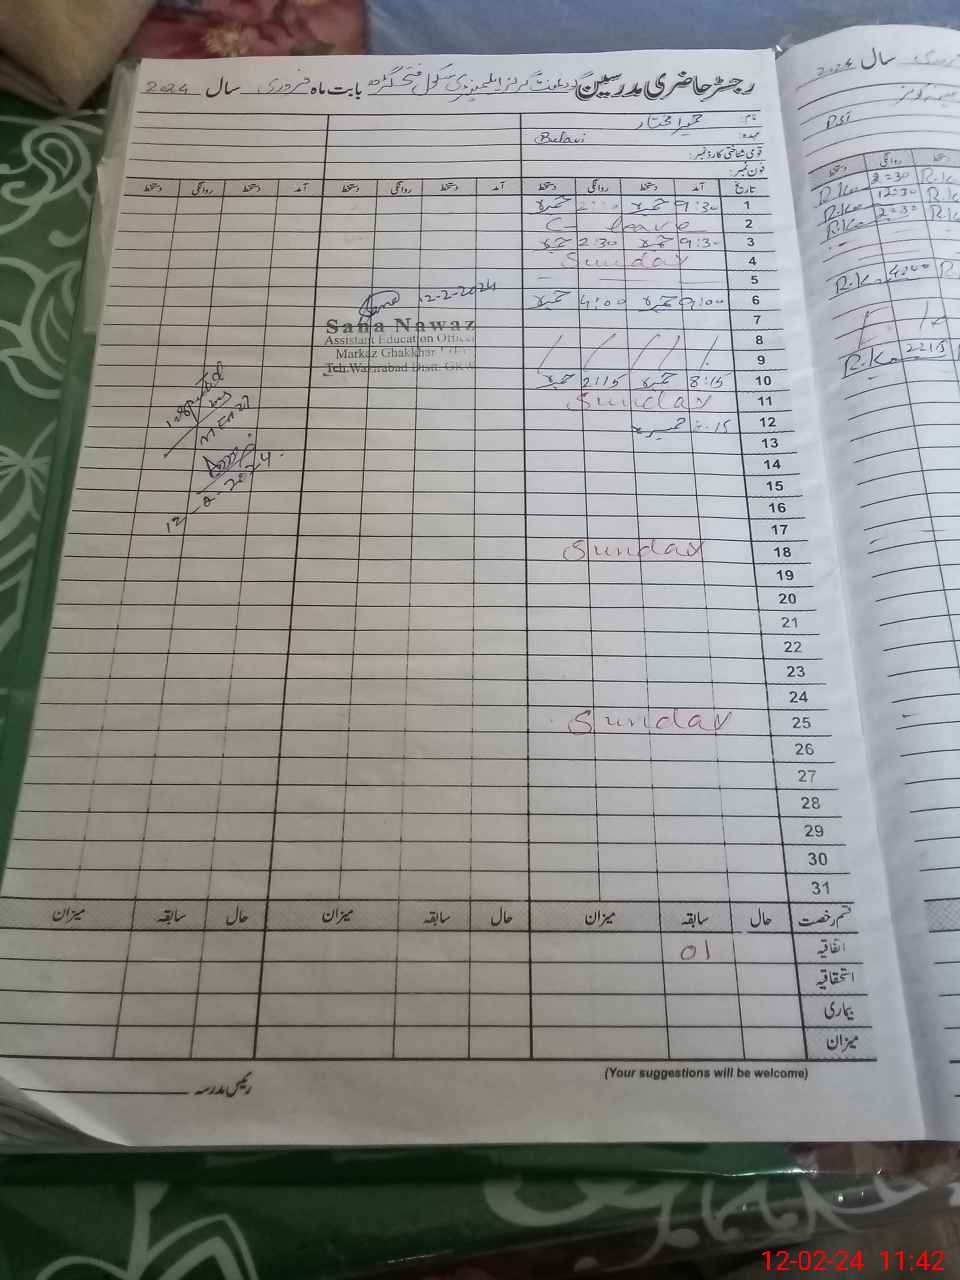 رجسٹر حاضری مدرسین گورنمنٹ گرلز ایلیمنٹری سکول فتح گڑھ بابت ماہ فروری سال 2024
نام: حمیرا مختار
عہدہ:
قومی شناختی کارڈ نمبر:
فون نمبر:
تاریخ آمد دستخط روانگی دستخط آمد دستخط روانگی دستخط آمد دستخط روانگی دستخط
1 9:30 حمیرا حمیرا
2 C- leave
3 9:30 حمیرا 2:30 حمیرا
4 Sunday
5
6 9:00 حمیرا 4:00 حمیرا
7
8
9
10 8:15 حمیرا 2:15 حمیرا
11 Sunday
12 حمیرا
13
14
15
16
17
18 Sunday
19
20
21
22
23
24
25 Sunday
26
27
28
29
30
31
Sana 12-2-2024
Sana Nawaz
Assistant Education Officer
Markaz Ghakkhar
Teh. Wazirabad Distt. GRW
12-2-2024
قسم رخصت حال سابقہ میزان حال سابقہ میزان حال سابقہ میزان
اتفاقیہ 01
استحقاقیہ
بیماری
میزان
(Your suggestions will be welcome)
رئیس مدرسہ
سال 2024
PST
دستخط روانگی دستخط
R.K 2=30 R.K
R.K 12=30 R.K
R.K 2=30 R.K
R.K 4:00 R
R.K 2:15
12-02-24 11:42